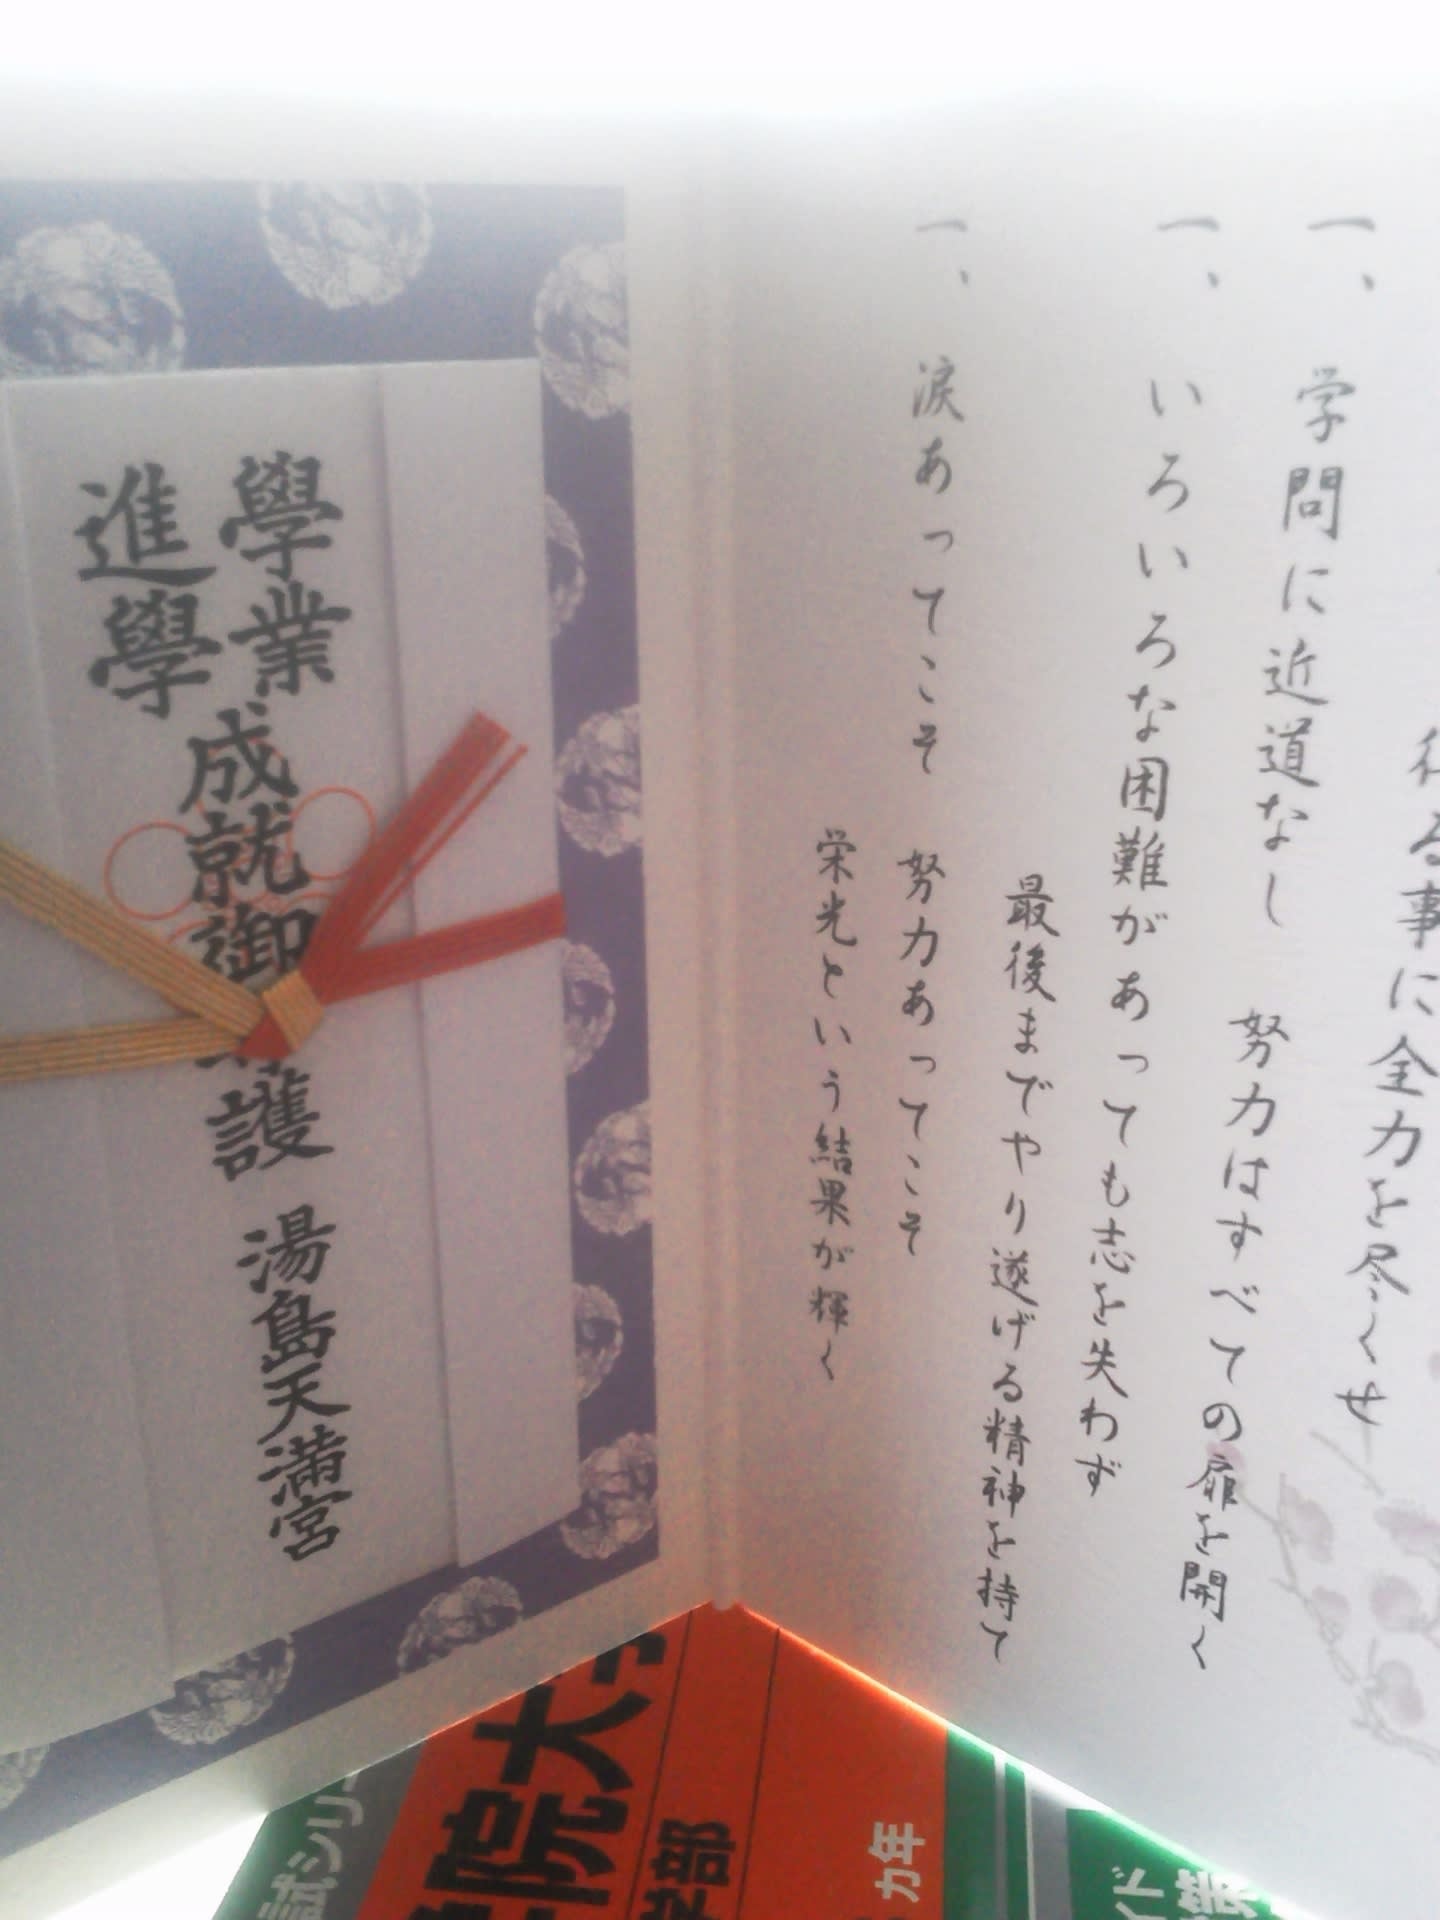 る事に全力を尽くせ
一、学問に近道なし 努力はすべての扉を開く
一、いろいろな困難があっても志を失わず
最後までやり遂げる精神を持て
一、涙あってこそ 努力あってこそ
栄光という結果が輝く
學業
進學
成就御
護 湯島天滿宮
院大
学部
カ年
試シリ
イド